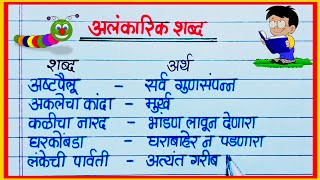 अलंकारिक शब्द
शब्द अर्थ
अष्टपैलू – सर्व गुणसंपन्न
अकलेचा कांदा – मुर्ख
कळीचा नारद – भांडण लावून देणारा
घरकोंबडा – घराबाहेर न पडणारा
लंकेची पार्वती – अत्यंत गरीब